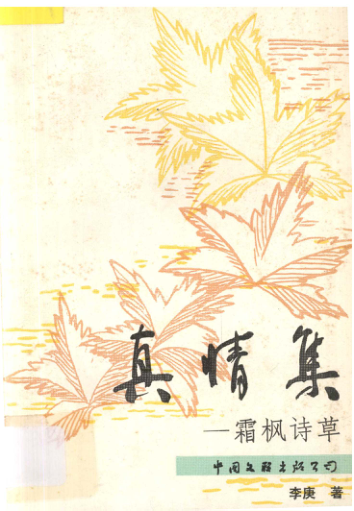 真情集
—霜枫诗草
中国文联出版公司
李庚 著